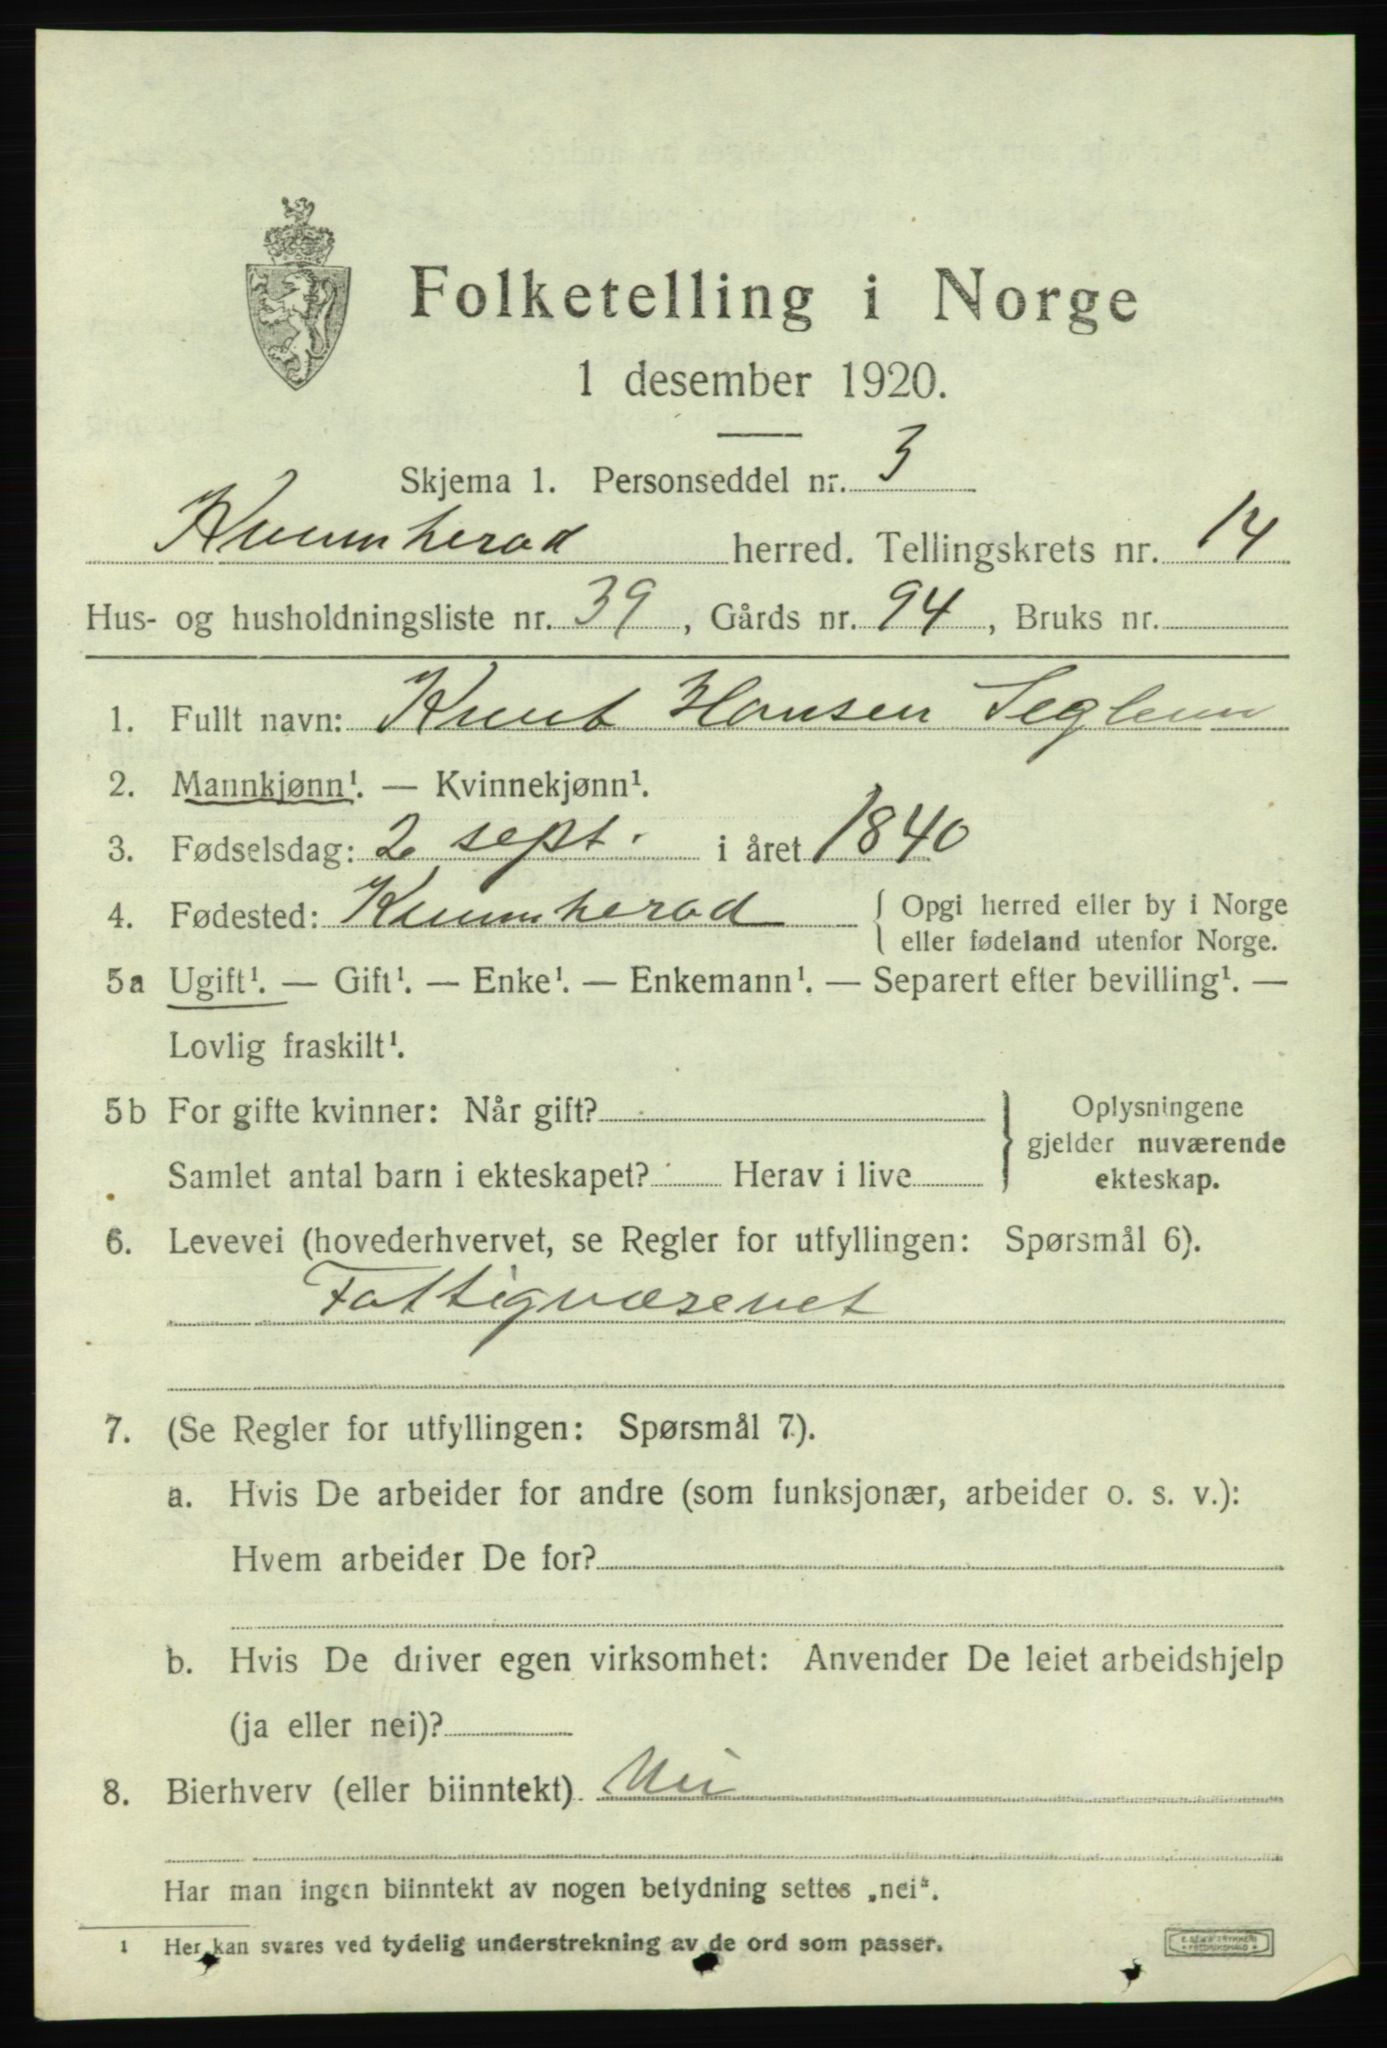 Folketelling i Norge
1 desember 1920.
Skjema 1. Personseddel nr. 3
Kvinnherad herred. Tellingskrets nr. 14
Hus- og husholdningsliste nr. 39, Gårds nr. 94, Bruks nr.
1. Fullt navn: Knut Hansen Seglem
2. Mannkjønn¹. — Kvinnekjønn¹.
3. Fødselsdag: 2 sept. i året 1840
4. Fødested: Kvinnherad { Opgi herred eller by i Norge
eller fødeland utenfor Norge.
5a Ugift¹. — Gift¹. — Enke¹. — Enkemann¹. — Separert efter bevilling¹. —
Lovlig fraskilt¹.
5b For gifte kvinner: Når gift?
Samlet antal barn i ekteskapet? Herav i live
} Oplysningene
gjelder nuværende
ekteskap.
6. Levevei (hovederhvervet, se Regler for utfyllingen: Spørsmål 6).
Fattigvæsenet
7. (Se Regler for utfyllingen: Spørsmål 7).
a. Hvis De arbeider for andre (som funksjonær, arbeider o. s. v.):
Hvem arbeider De for?
b. Hvis De driver egen virksomhet: Anvender De leiet arbeidshjelp
(ja eller nei)?
8. Bierhverv (eller biinntekt) Nei
Har man ingen biinntekt av nogen betydning settes „nei“.
1 Her kan svares ved tydelig understrekning av de ord som passer.